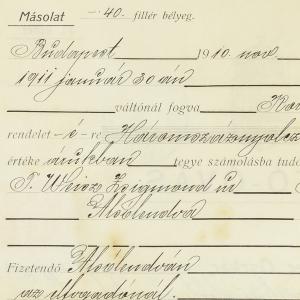 Másolat — 40. fillér bélyeg.
Budapest 1910 nov
1911 január 30 án
váltónál fogva
rendelet -é- re Háromszáznyolcz
értéke árukban tegye számolásba tudó
T. Weisz Zsigmond úr
Alsólendva
Fizetendő Alsólendván
az elfogadónál.